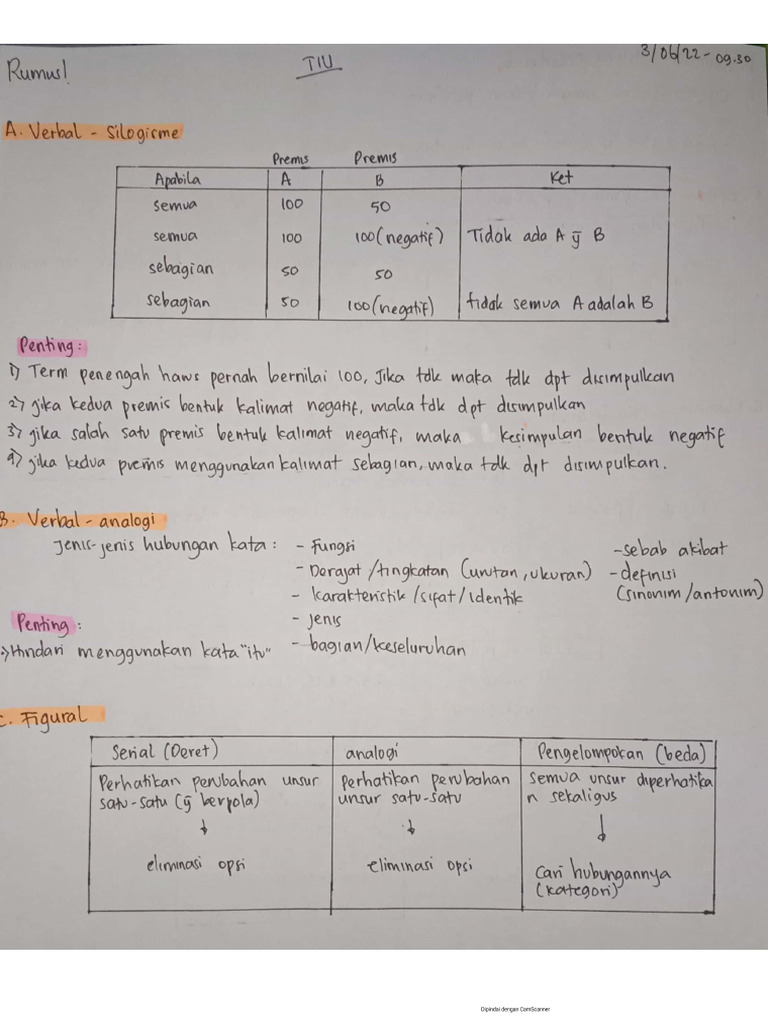 Rumus!
TIU
3/06/22 - 09.30
A. Verbal - Silogisme
Premis Premis
Apabila A B Ket
semua 100 50
semua 100 100 (negatif) Tidak ada A yg B
sebagian 50 50
sebagian 50 100 (negatif) tidak semua A adalah B
Penting:
1) Term penengah harus pernah bernilai 100, Jika tdk maka tdk dpt disimpulkan
2) jika kedua premis bentuk kalimat negatif, maka tdk dpt disimpulkan
3) jika salah satu premis bentuk kalimat negatif, maka kesimpulan bentuk negatif
4) jika kedua premis menggunakan kalimat sebagian, maka tdk dpt disimpulkan.
B. Verbal - analogi
Jenis-jenis hubungan kata: - Fungsi
- Derajat/tingkatan (urutan, ukuran)
- karakteristik/sifat/identik
- jenis
- bagian/keseluruhan
- sebab akibat
- definisi
(sinonim/antonim)
Penting:
Hindari menggunakan kata "itu"
C. Figural
Serial (Deret) analogi Pengelompokan (beda)
Perhatikan perubahan unsur
satu-satu (yg berpola)
↓
eliminasi opsi
Perhatikan perubahan
unsur satu-satu
↓
eliminasi opsi
semua unsur diperhatika
n sekaligus
↓
Cari hubungannya
(kategori)
Dipindai dengan CamScanner